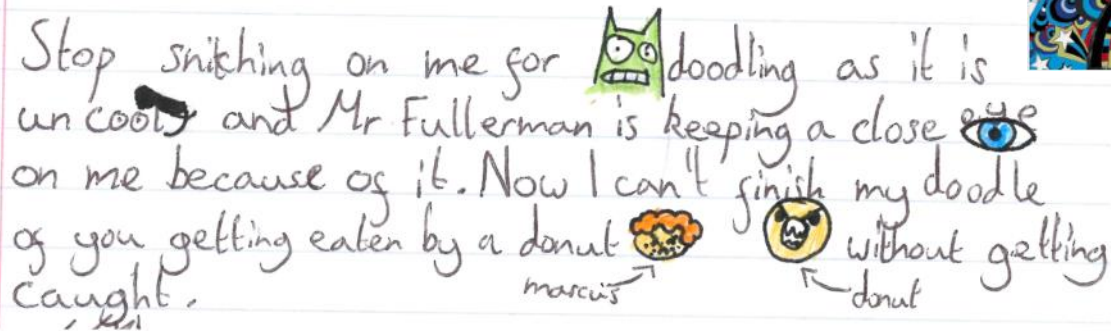 Stop snitching on me for doodling as it is
uncool and Mr Fullerman is keeping a close eye
on me because of it. Now I can't finish my doodle
of you getting eaten by a donut without getting
marcus donut
caught.